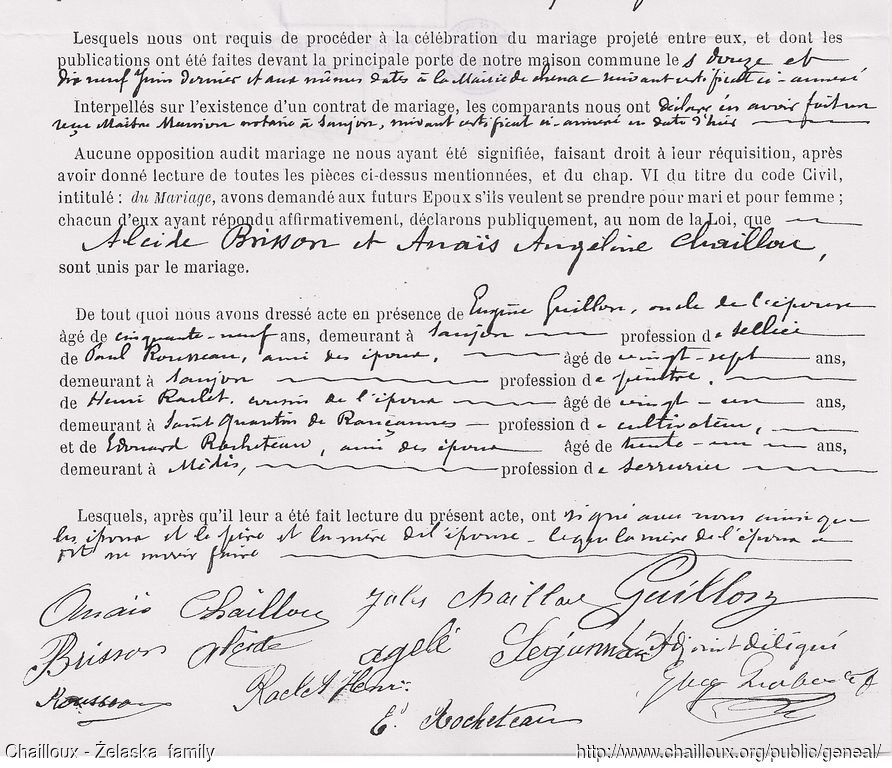 Lesquels nous ont requis de procéder à la célébration du mariage projeté entre eux, et dont les
publications ont été faites devant la principale porte de notre maison commune les douze et
dix neuf Juin dernier et aux mêmes dates à la Mairie de chenac suivant certificat ci-annexé
Interpellés sur l'existence d'un contrat de mariage, les comparants nous ont déclaré en avoir fait un
reçu Maître notaire à Saujon, suivant certificat ci-annexé en date d'hier
Aucune opposition audit mariage ne nous ayant été signifiée, faisant droit à leur réquisition, après
avoir donné lecture de toutes les pièces ci-dessus mentionnées, et du chap. VI du titre du code Civil,
intitulé : du Mariage, avons demandé aux futurs Epoux s'ils veulent se prendre pour mari et pour femme ;
chacun d'eux ayant répondu affirmativement, déclarons publiquement, au nom de la Loi, que
Alcide Brisson et Anaïs Angeline Chaillou,
sont unis par le mariage.
De tout quoi nous avons dressé acte en présence de Eugène Guillon, oncle de l'épouse
âgé de cinquante-neuf ans, demeurant à Saujon profession de sellier
de Paul Rousseau, ami des époux, âgé de vingt-sept ans,
demeurant à Saujon profession de peintre,
de Henri Raclet, cousin de l'époux âgé de vingt-un ans,
demeurant à Saint Quantin de Rançannes profession de cultivateur,
et de Edouard Rocheteau, ami des époux âgé de trente-un ans,
demeurant à Médis, profession de serrurier
Lesquels, après qu'il leur a été fait lecture du présent acte, ont signé avec nous ainsi que
les époux et le père et la mère de l'épouse - le que la mère de l'époux a
dit ne savoir faire
Anaïs Chaillou Jules Chaillou Guillon
Brisson Alcide agelé Adjoint délégué
Rousseau Raclet Henri
Ed Rocheteau
Chailloux - Żelaska family http://www.chailloux.org/public/geneal/